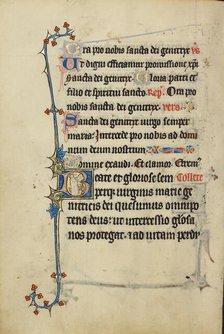 Ora pro nobis sancta dei genitrix vs
Ut digni efficiamur promissione xpi
Sancta dei genitrix Gloria patri et
filio et spiritui sancto Resp. Ora pro
nobis sancta dei genitrix. vers.
Sancta dei genitrix virgo semper
maria. Intercede pro nobis ad domi
num deum nostrum
Domine exaudi. Et clamor. Oremus
Beate et gloriose sem Collecte
perque virginis marie ge
nitricis dei quesumus omnipo
tens deus: ut intercessio gloriosa
nos protegat: et ad vitam perdu